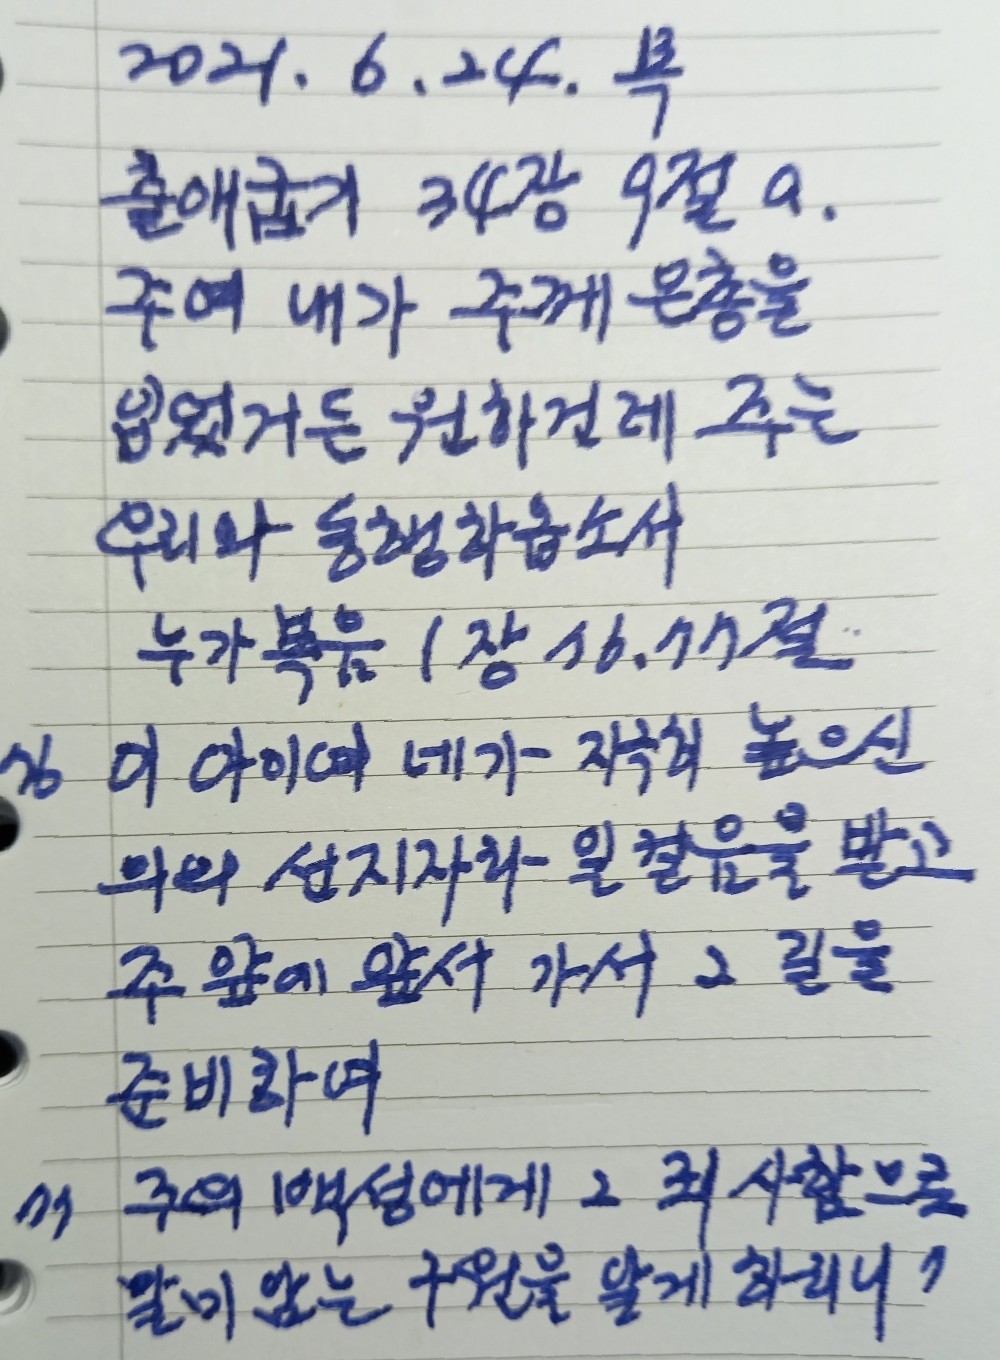 2021. 6. 24. 목
출애굽기 34장 9절 a.
주여 내가 주께 은총을
입었거든 원하건데 주는
우리와 동행하옵소서
누가복음 1장 76.77절
76 이 아이여 네가 지극히 높으신
의의 선지자라 일컬음을 받고
주 앞에 앞서 가서 그 길을
준비하여
77 주의 백성에게 그 죄 사함으로
말미암는 구원을 알게 하리니